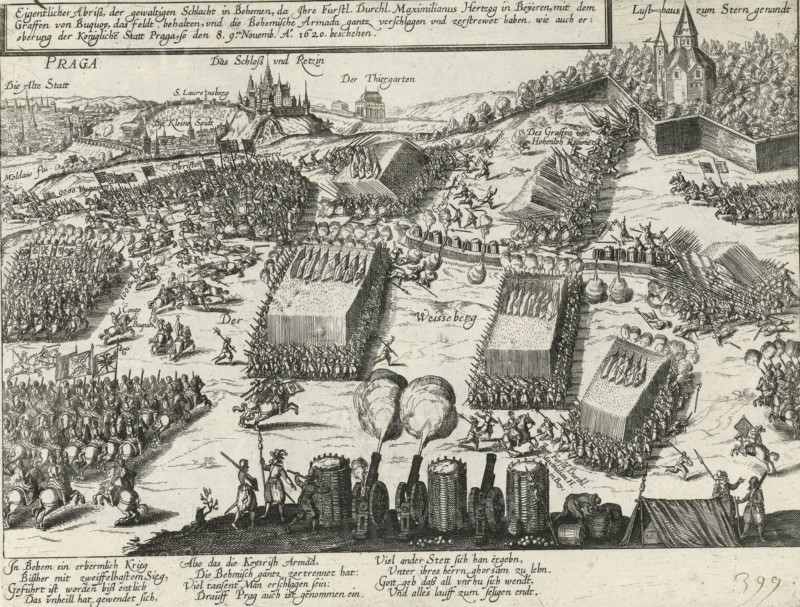 Eigentlicher Abriß, der gewaltigen Schlacht in Bohemen, da Ihre Fürstl. Durchl. Maximilianus Hertzog in Beyeren, mit dem
Graffen von Buquoy, das Feldt behalten, und die Bohemische Armada gantz verschlagen und zerstrewet haben, wie auch er:
oberung der Königliche Statt Praga, so den 8. 9. Novemb. A.º 1620. beschehen.
Lust-haus zum Stern genandt
PRAGA
Das Schloß vnd Retzin
Die Alte Statt
S. Laurenzberg
Der Thiergarten
Die Kleine Seidt
Des Graffen von
Hohenloh
Moldaw flu
Conte
Buquoy
Der Weisseberg
In Behem ein erbermlich Krieg
Bißher mit zweiffelhafftem Sieg,
Geführt ist worden biß entlich
Das vnheill hat gewendet sich,
Also das die Keysrish Armad,
Die Behmisch gantz zertrennet hat:
Viel tausent Man erschlagen sein:
Drauff Prag auch ist genommen ein.
Viel ander Stett sich han ergebn,
Vnter ihres herrn ghorsam zu lebn.
Gott geb daß all vnrhu sich wendt,
Vnd alles lauff zum seligen endt.
399.